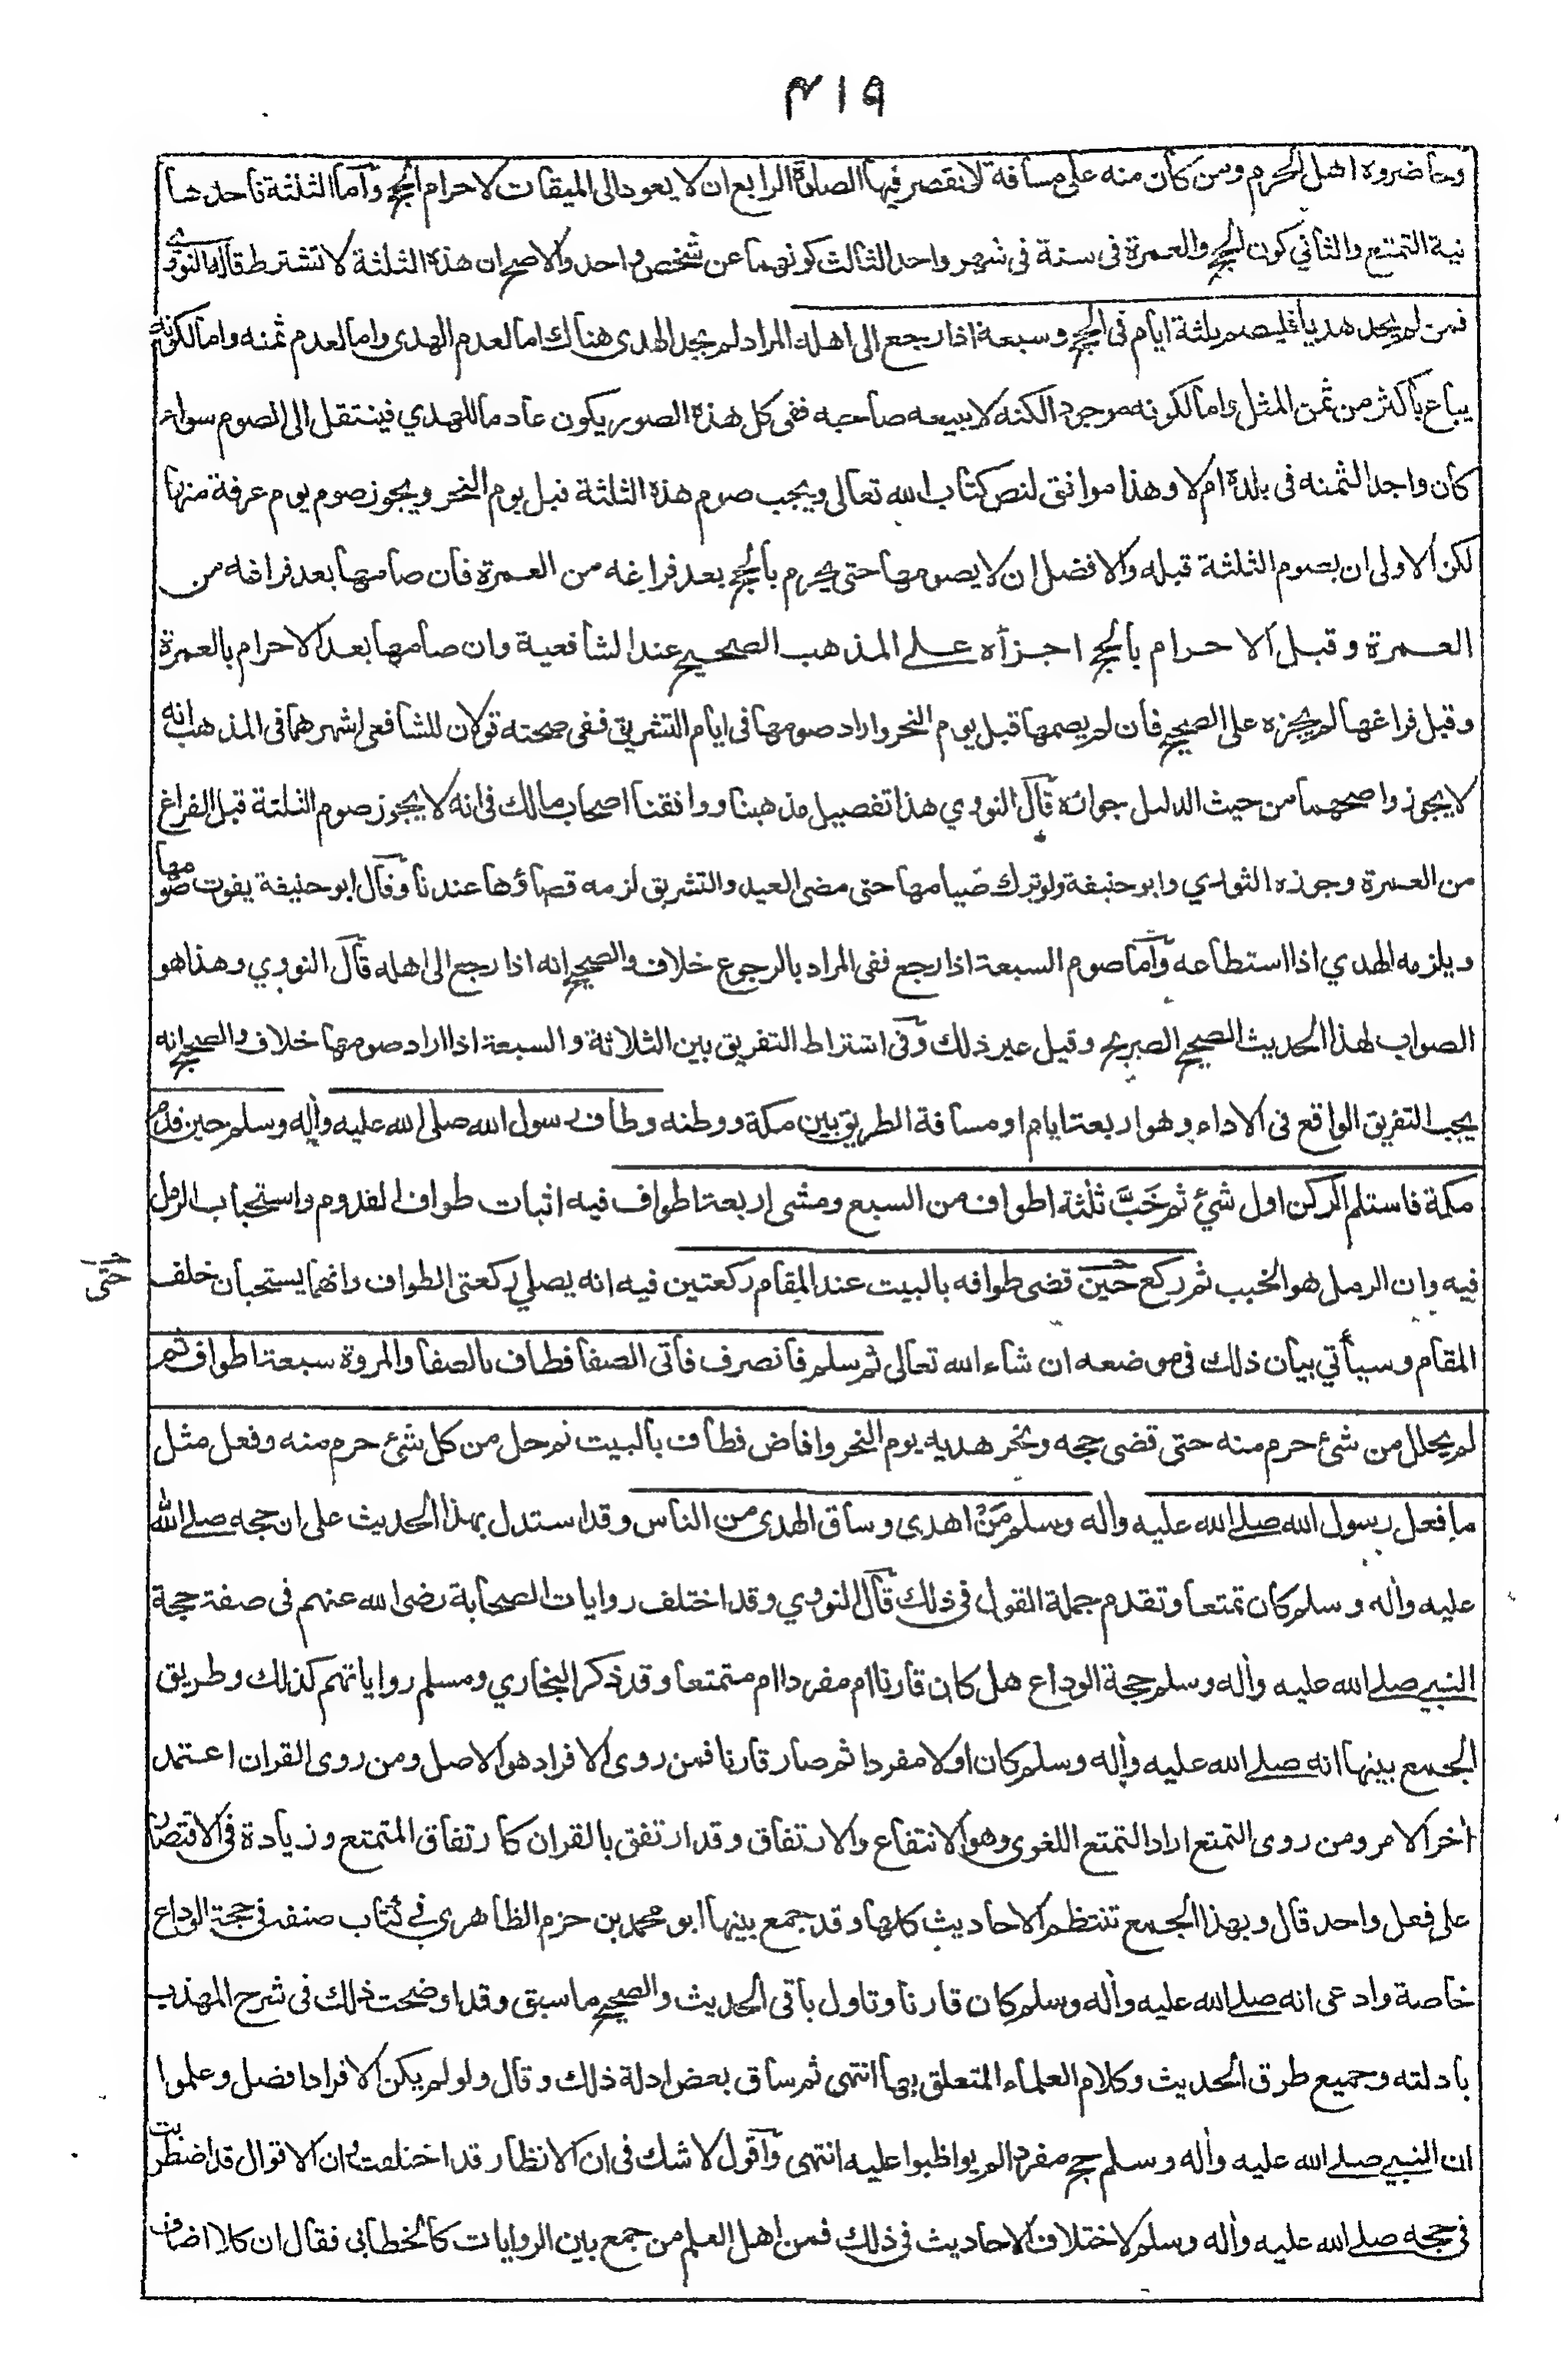 ٤١٩
وحاضروه اهل الحرم ومن كان منه على مسافة لا نقصر فيها الصلوة الرابع ان لا يعود الى الميقات لاحرام الحج وآما الثلثة فاحدها
نية التمتع والثاني كون الحج والعمرة فى سنة فى شهر واحد الثالث كونهما عن شخص واحد والاصح ان هذه الثلثة لا تشترط قاله النووي
فمن لم يجد هديا فليصم ثلثة ايام فى الحج وسبعة اذا رجع الى اهله المراد لم يجد الهدى هناك اما لعدم الهدى واما لعدم ثمنه واما لكونه
يباع باكثر من ثمن المثل واما لكونه موجودا لكنه لا يبيعه صاحبه ففى كل هذه الصور يكون عادما للهدي فينتقل الى الصوم سواء
كان واجدا لثمنه فى بلده ام لا وهذا موافق لنص كتاب الله تعالى ويجب صوم هذه الثلثة قبل يوم النحر ويجوز صوم يوم عرفة منها
لكن الاولى ان يصوم الثلثة قبله والافضل ان لا يصومها حتى يحرم بالحج بعد فراغه من العمرة فان صامها بعد فراغه من
العمرة وقبل الاحرام بالحج اجزأه على المذهب الصحيح عند الشافعية وان صامها بعد الاحرام بالعمرة
وقبل فراغها لم يجزه على الصحيح فان لم يصمها قبل يوم النحر واراد صومها فى ايام التشريق ففى صحته قولان للشافعى اشهرهما فى المذهب انه
لا يجوز واصحهما من حيث الدليل جوازه قال النووي هذا تفصيل مذهبنا ووافقنا اصحاب مالك فى انه لا يجوز صوم الثلثة قبل الفراغ
من العمرة وجوزه الثوري وابو حنيفة ولو ترك صيامها حتى مضى العيد والتشريق لزمه قضاؤها عندنا وقال ابو حنيفة يفوت صومها
ويلزمه الهدي اذا استطاعه وآما صوم السبعة اذا رجع ففى المراد بالرجوع خلاف والصحيح انه اذا رجع الى اهله قال النووي وهذا هو
الصواب لهذا الحديث الصحيح الصريح وقيل غير ذلك وفى اشتراط التفريق بين الثلاثة والسبعة اذا اراد صومها خلاف والصحيح انه
يجب التفريق الواقع فى الاداء وهو اربعة ايام ومسافة الطريق بين مكة ووطنه وطاف رسول الله صلى الله عليه واله وسلم حين قدم
مكة فاستلم الركن اول شئ ثم خَبَّ ثلثة اطواف من السبع ومشى اربعة اطواف فيه اثبات طواف القدوم واستحباب الرمل
فيه وان الرمل هو الخبب ثم ركع حين قضى طوافه بالبيت عند المقام ركعتين فيه انه يصلي ركعتى الطواف وانهما يستحبان خلف
حتى
المقام وسيأتي بيان ذلك فى موضعه ان شاء الله تعالى ثم سلم فانصرف فاتى الصفا فطاف بالصفا والمروة سبعة اطواف ثم
لم يحلل من شئ حرم منه حتى قضى حجه ونحر هديه يوم النحر وافاض فطاف بالبيت ثم حل من كل شئ حرم منه وفعل مثل
ما فعل رسول الله صلى الله عليه واله وسلم مَنْ اهدى وساق الهدى من الناس وقد استدل بهذا الحديث على ان حجه صلى الله
عليه واله وسلم كان تمتعا وتقدم جملة القول فى ذلك قال النووي وقد اختلف روايات الصحابة رضى الله عنهم فى صفة حجة
النبي صلى الله عليه واله وسلم حجة الوداع هل كان قارنا ام مفردا ام متمتعا وقد ذكر البخاري ومسلم رواياتهم كذلك وطريق
الجمع بينها انه صلى الله عليه واله وسلم كان اولا مفردا ثم صار قارنا فمن روى الافراد هو الاصل ومن روى القران اعتمد
اخر الامر ومن روى التمتع اراد التمتع اللغوى وهو الانتفاع والارتفاق وقد ارتفق بالقران كارتفاق المتمتع وزيادة فى الاقتصار
على فعل واحد قال وبهذا الجمع تنتظم الاحاديث كلها وقد جمع بينها ابو محمد بن حزم الظاهرى في كتاب صنفه فى حجة الوداع
خاصة وادعى انه صلى الله عليه واله وسلم كان قارنا وتاول باقى الحديث والصحيح ما سبق وقد اوضحت ذلك فى شرح المهذب
بادلته وجميع طرق الحديث وكلام العلماء المتعلق بها انتهى ثم ساق بعض ادلة ذلك وقال ولو لم يكن الافراد افضل وعلموا
ان النبي صلى الله عليه واله وسلم حج مفردا لم يواظبوا عليه انتهى وآقول لا شك فى ان الانظار قد اختلفت وان الاقوال قد اضطربت
فى حجه صلى الله عليه واله وسلم لاختلاف الاحاديث فى ذلك فمن اهل العلم من جمع بين الروايات كالخطابى فقال ان كلا اضاف